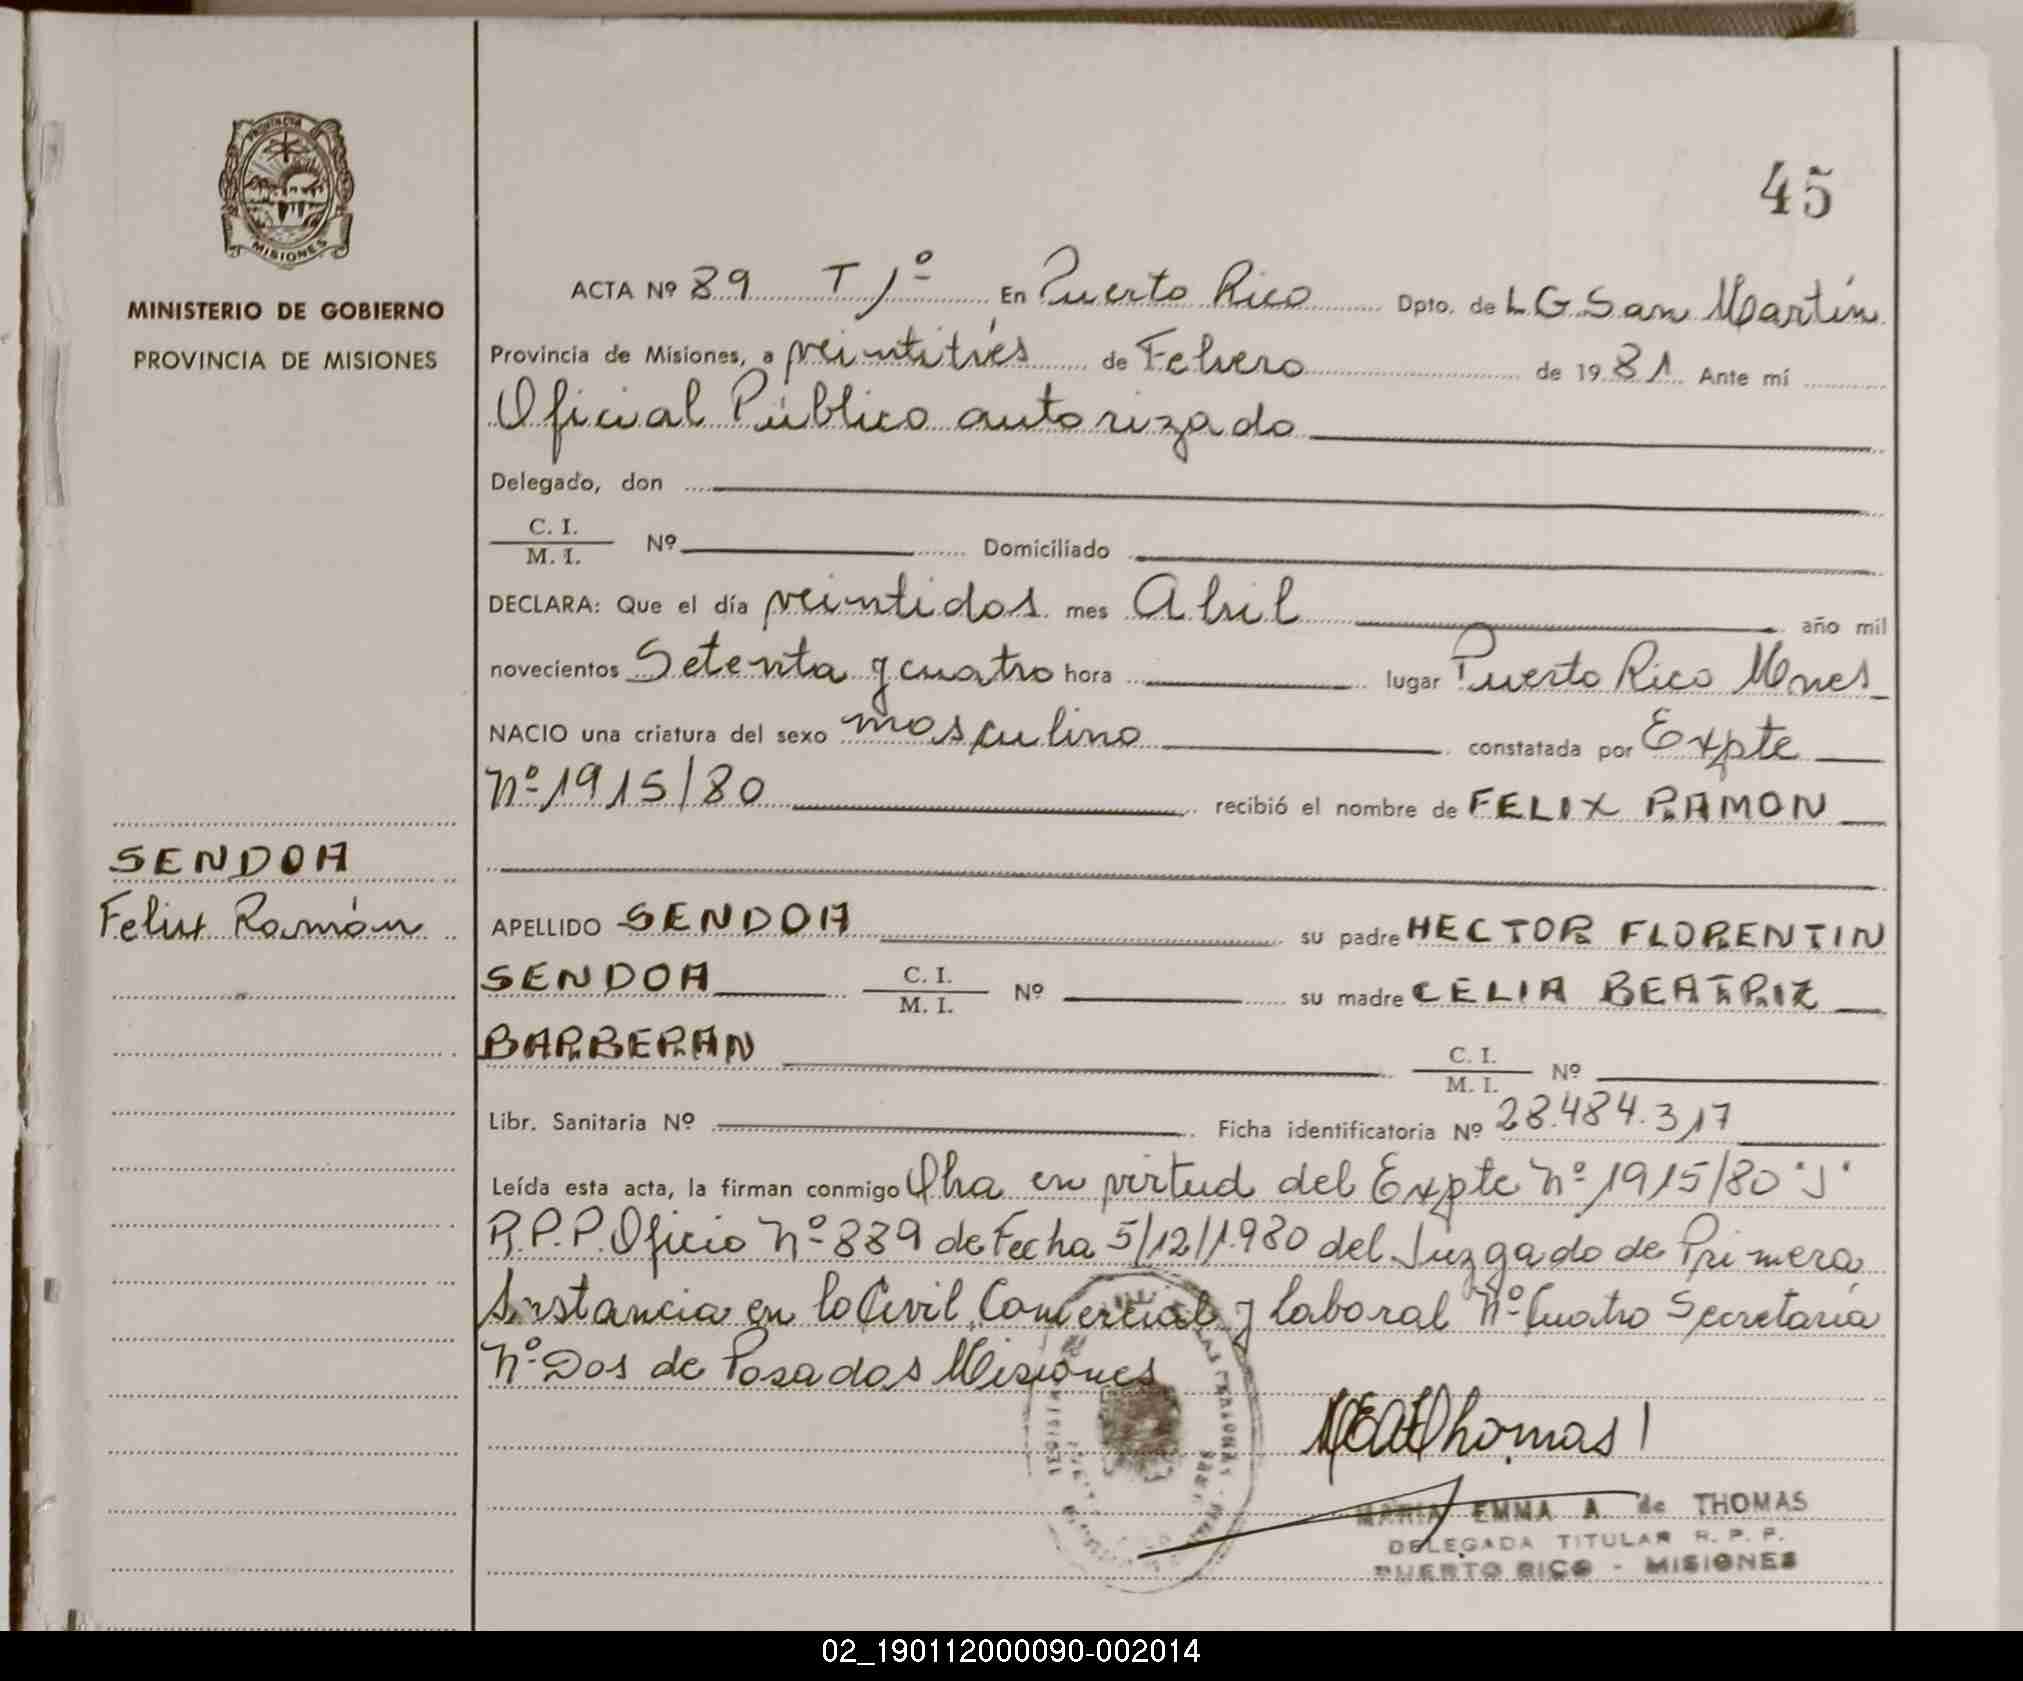 PROVINCIA
MISIONES
MINISTERIO DE GOBIERNO
PROVINCIA DE MISIONES
SENDOA
Felix Ramón
45
ACTA Nº 89 T 1º En Puerto Rico Dpto. de L G San Martín
Provincia de Misiones, a veintitrés de Febrero de 1981 Ante mí
Oficial Público autorizado
Delegado, don
C. I.
M. I. Nº Domiciliado
DECLARA: Que el día veintidos mes Abril año mil
novecientos Setenta y cuatro hora lugar Puerto Rico Mnes
NACIO una criatura del sexo masculino constatada por Expte
Nº 1915/80 recibió el nombre de FELIX RAMON
APELLIDO SENDOA su padre HECTOR FLORENTIN
SENDOA C. I. M. I. Nº su madre CELIA BEATRIZ
BARBERAN C. I. M. I. Nº
Libr. Sanitaria Nº Ficha identificatoria Nº 28.484.317
Leída esta acta, la firman conmigo en virtud del Expte Nº 1915/80 "J"
R.P.P. Oficio Nº 889 de Fecha 5/12/1.980 del Juzgado de Primera
Instancia en lo Civil Comercial y Laboral Nº Cuatro Secretaría
Nº Dos de Posadas Misiones
Thomas
MARIA EMMA A. de THOMAS
DELEGADA TITULAR R. P. P.
PUERTO RICO - MISIONES
02_190112000090-002014